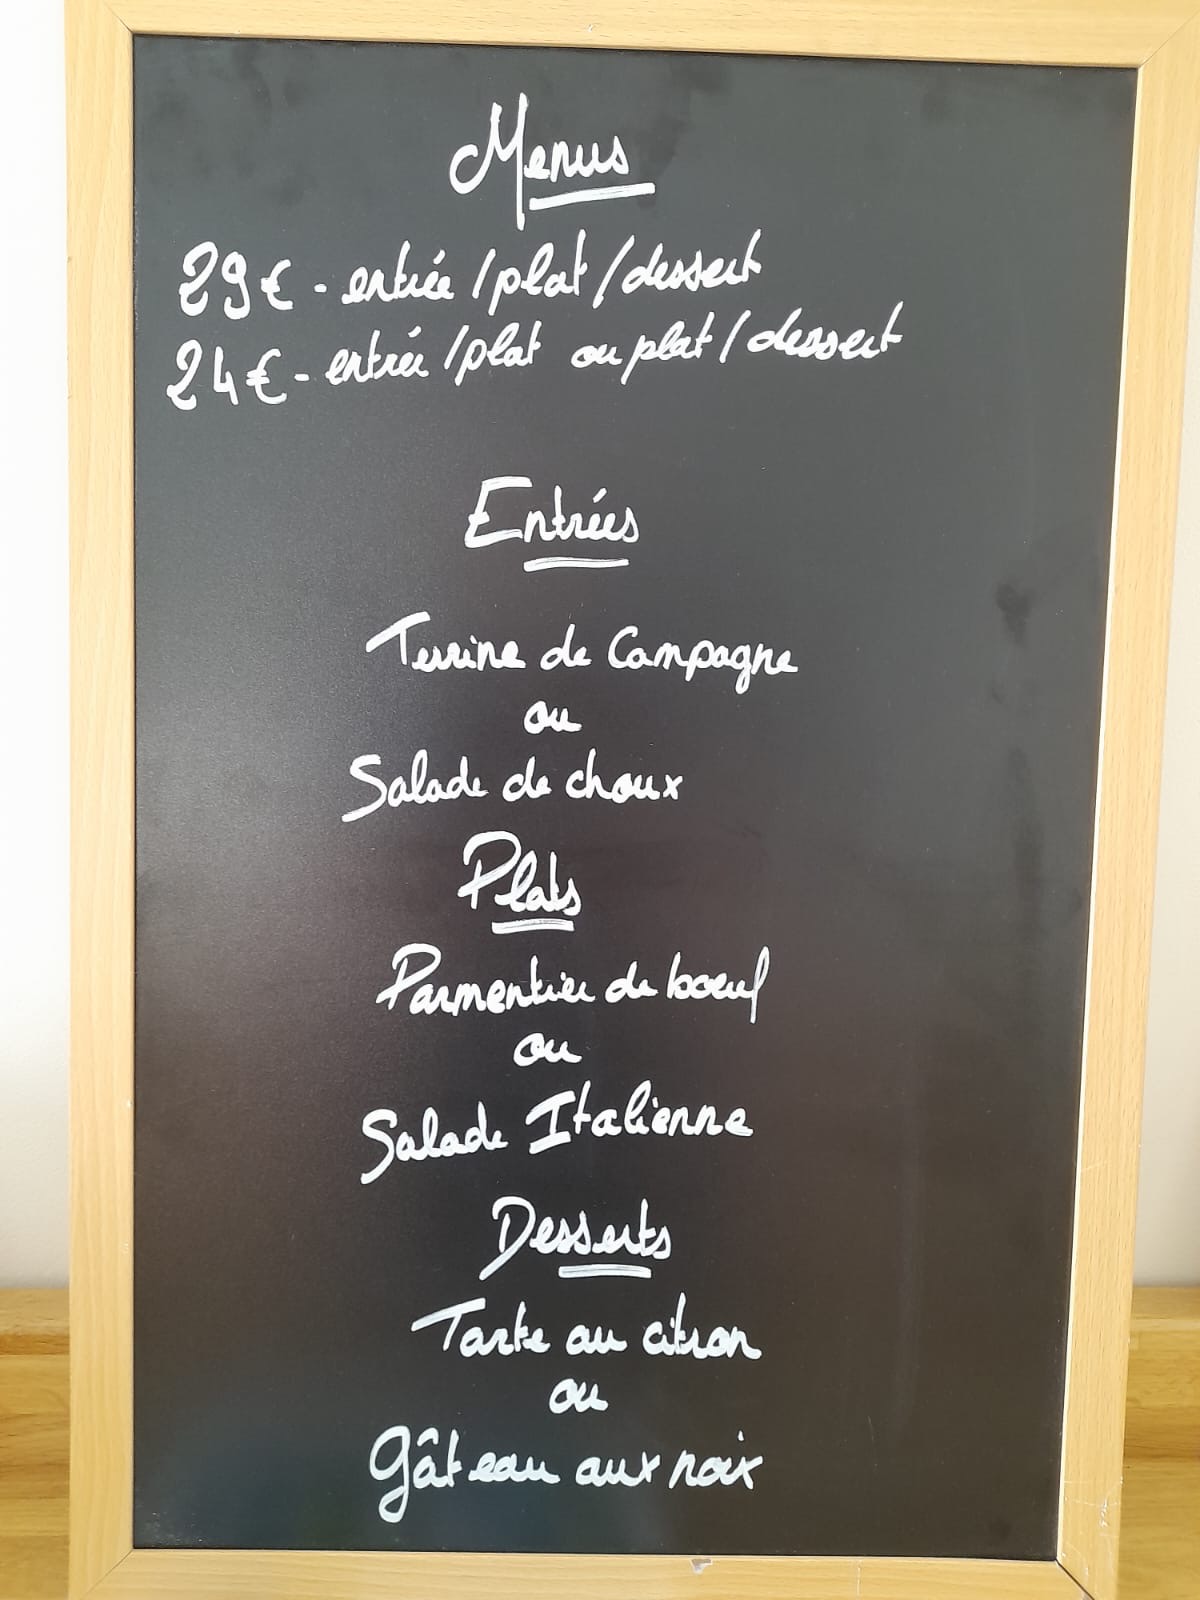 Menus
29€ - entrée / plat / dessert
24€ - entrée / plat ou plat / dessert
Entrées
Terrine de Campagne
ou
Salade de choux
Plats
Parmentier de boeuf
ou
Salade Italienne
Desserts
Tarte au citron
ou
Gâteau aux noix